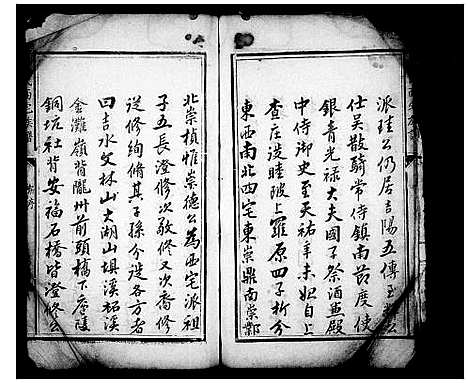 派珪公仍居吉陽五傳至
仕吳散騎常侍鎮南節度使
銀青光禄大夫國子祭酒無殿
中侍御史至天祐年未始自上
查庄漠睦陂上羅原四子析分
東西南北四宅東崇鼎南崇酆
北崇楨惟崇德公為西宅派祖
子五長澄修次敬修又次喬修
從修絢脩其子孫分徙各方者
曰吉水文林山大湖山塤溪柘溪
金灘嶺背隴州前頭橋下底陵
銅坑社背安福石橋皆澄修公